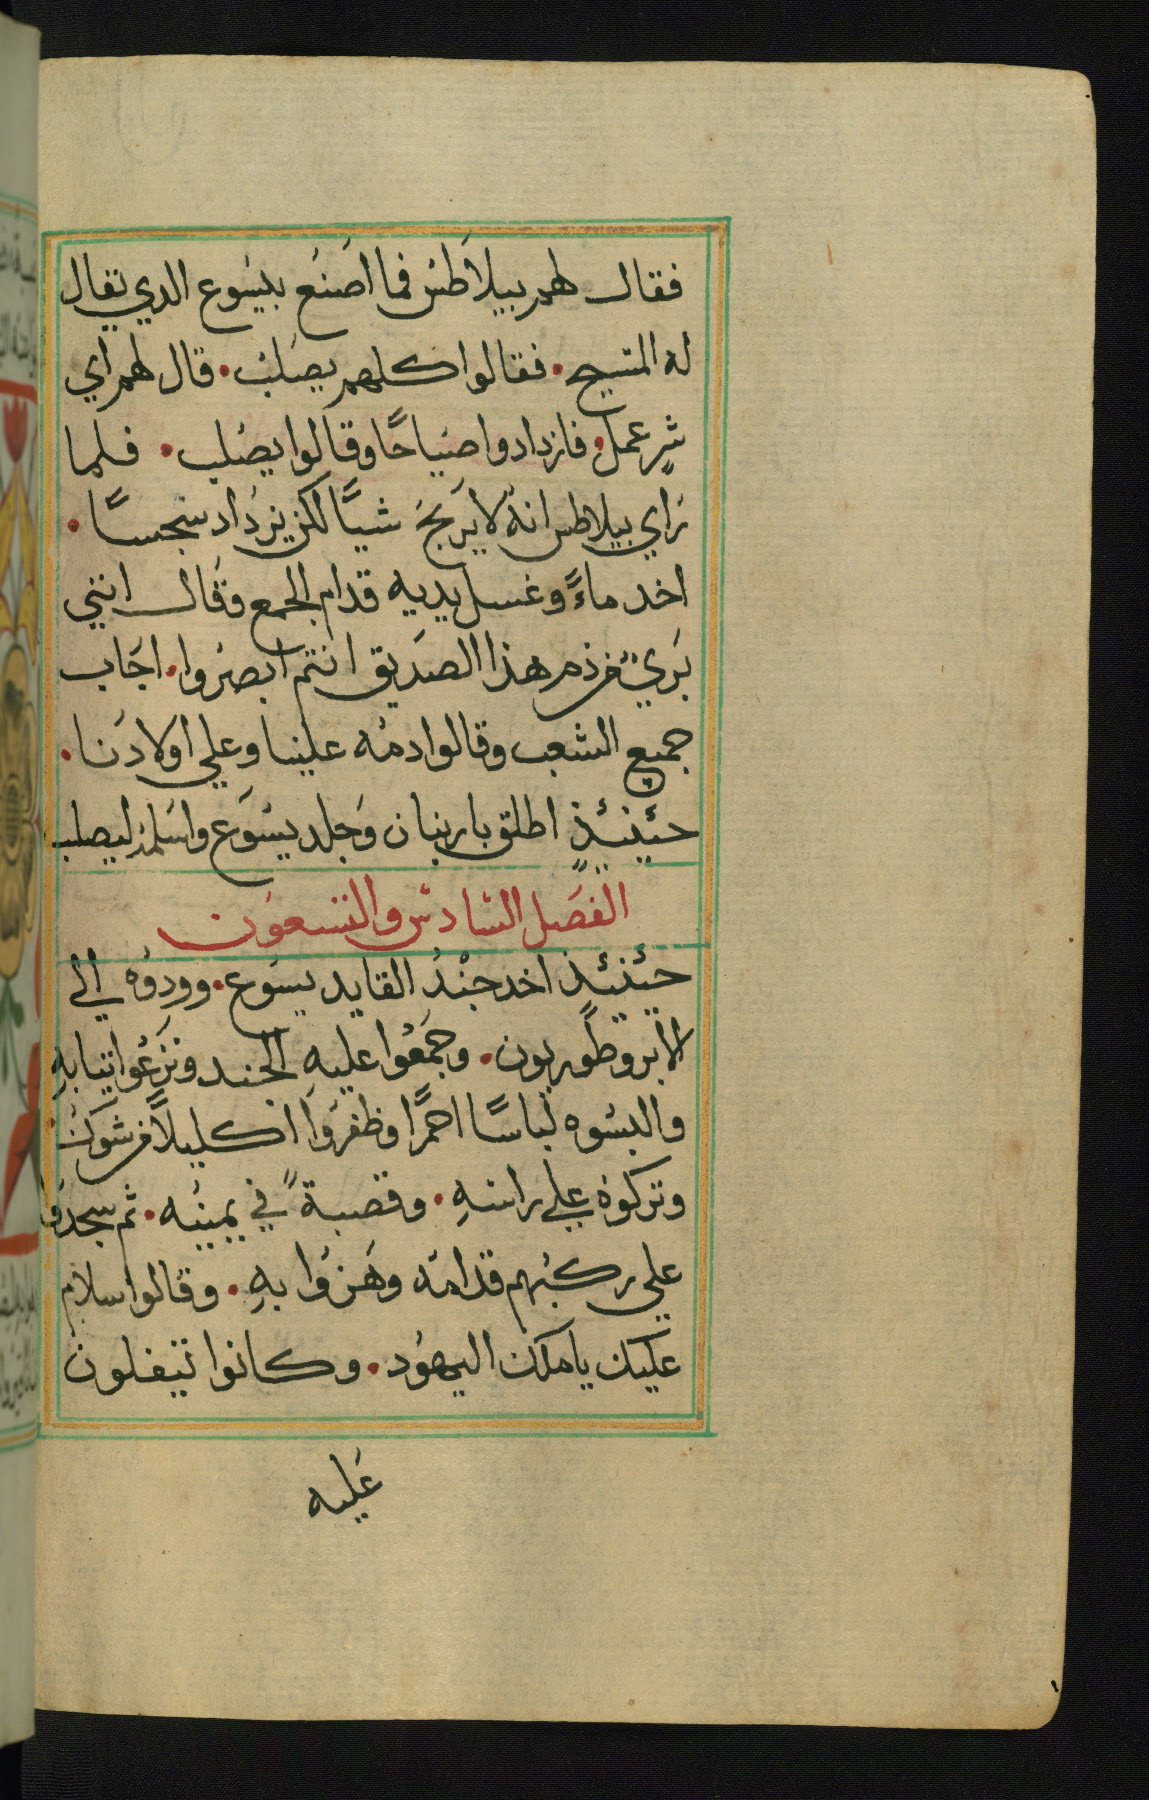 فقال لهم بيلاطس فما اصنع بيسوع الدي تقال
له المسيح • فقالوا كلهم يصلب • قال لهم اي
شر عمل • فازدادوا صياحًا وقالوا يصلب • فلما
راي بيلاطس انه لا يربح شيًا لكن يزداد سجسًا •
اخد ماءً وغسل يديه قدام الجمع وقال انني
بري من دم هذا الصديق انتم ابصروا • اجاب
جميع الشعب وقالوا دمه علينا وعلي اولادنا •
حينئذٍ اطلق باربنان وجلد يسوع واسلمه ليصلب
الفصل السادس والتسعون
حينئذٍ اخد جند القايد يسوع • وودوه الي
الابروطوريون • وجمعوا عليه الجند ونزعوا تيابه
والبسوه لباسًا احمرًا وظفروا اكليلاً من شوك •
وتركوه علي راسه • وقصبةً في يمينه • ثم سجدوا
علي ركبهم قدامه وهزوا به • وقالوا سلام
عليك يا ملك اليهود • وكانوا يتفلون
عليه